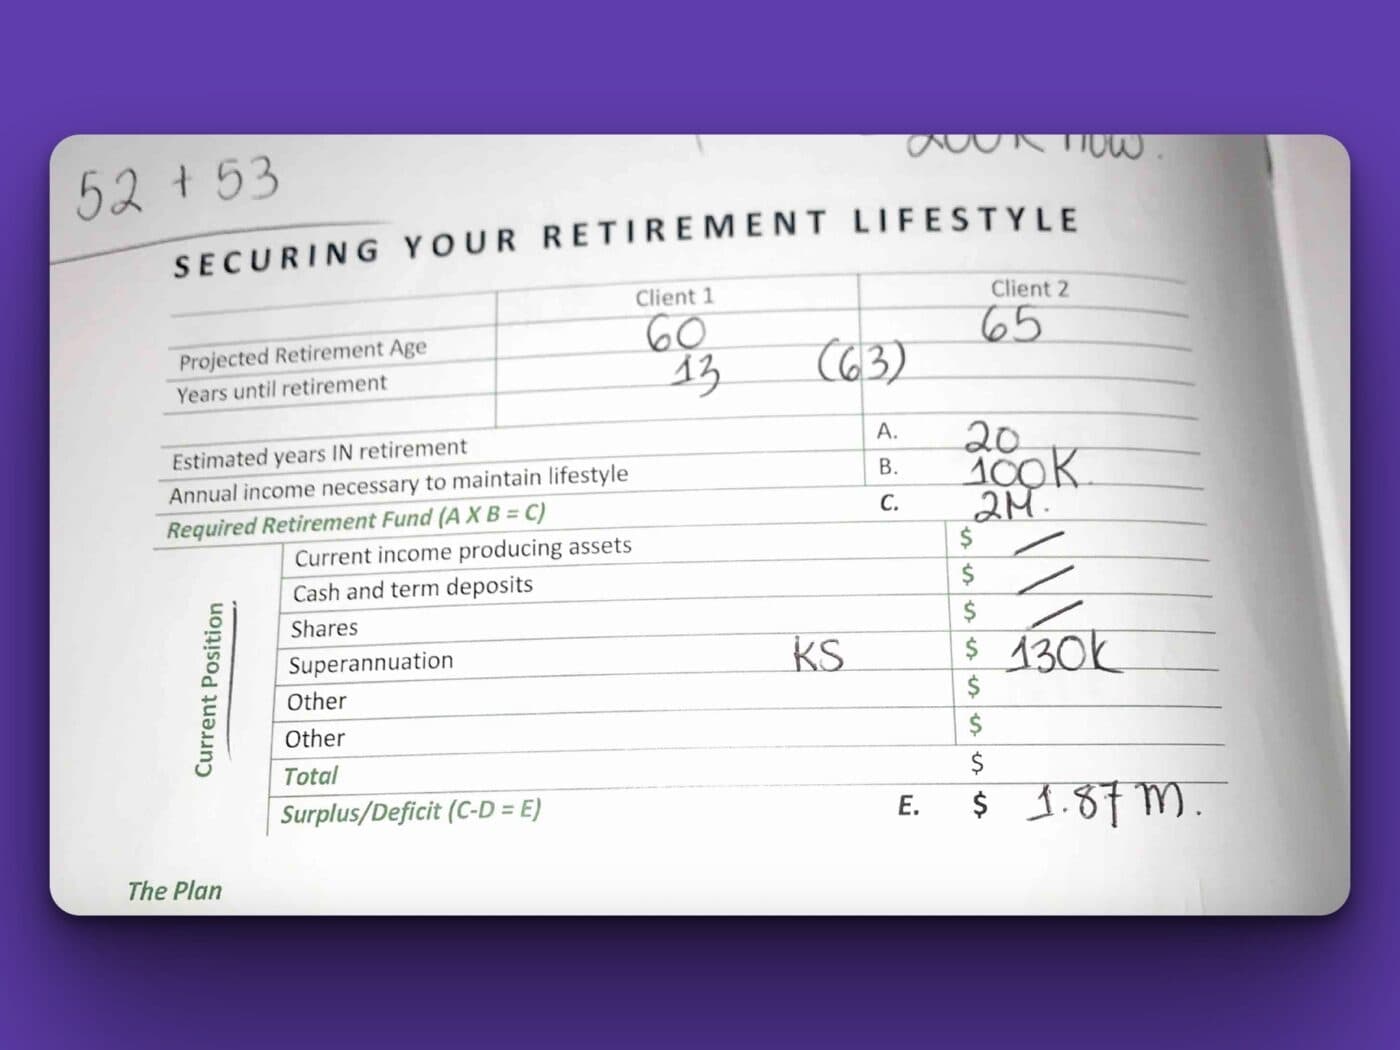 now.
52 + 53
SECURING YOUR RETIREMENT LIFESTYLE
Client 1 Client 2
Projected Retirement Age 60 65
Years until retirement 13 (63)
Estimated years IN retirement A. 20
Annual income necessary to maintain lifestyle B. 100K.
Required Retirement Fund (A X B = C) C. 2M.
Current Position
Current income producing assets $ /
Cash and term deposits $ /
Shares $ /
Superannuation KS $ 130k
Other $
Other $
Total $
Surplus/Deficit (C-D = E) E. $ 1.87 m.
The Plan